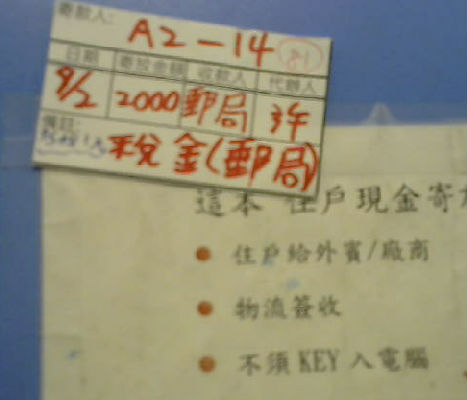 寄款人: A2-14
日期 寄放金額 收款人 代辦人
9/2 2000 郵局
備註:
稅金(郵局)
這本 住戶現金寄放
● 住戶給外賓/廠商
● 物流簽收
● 不須KEY入電腦